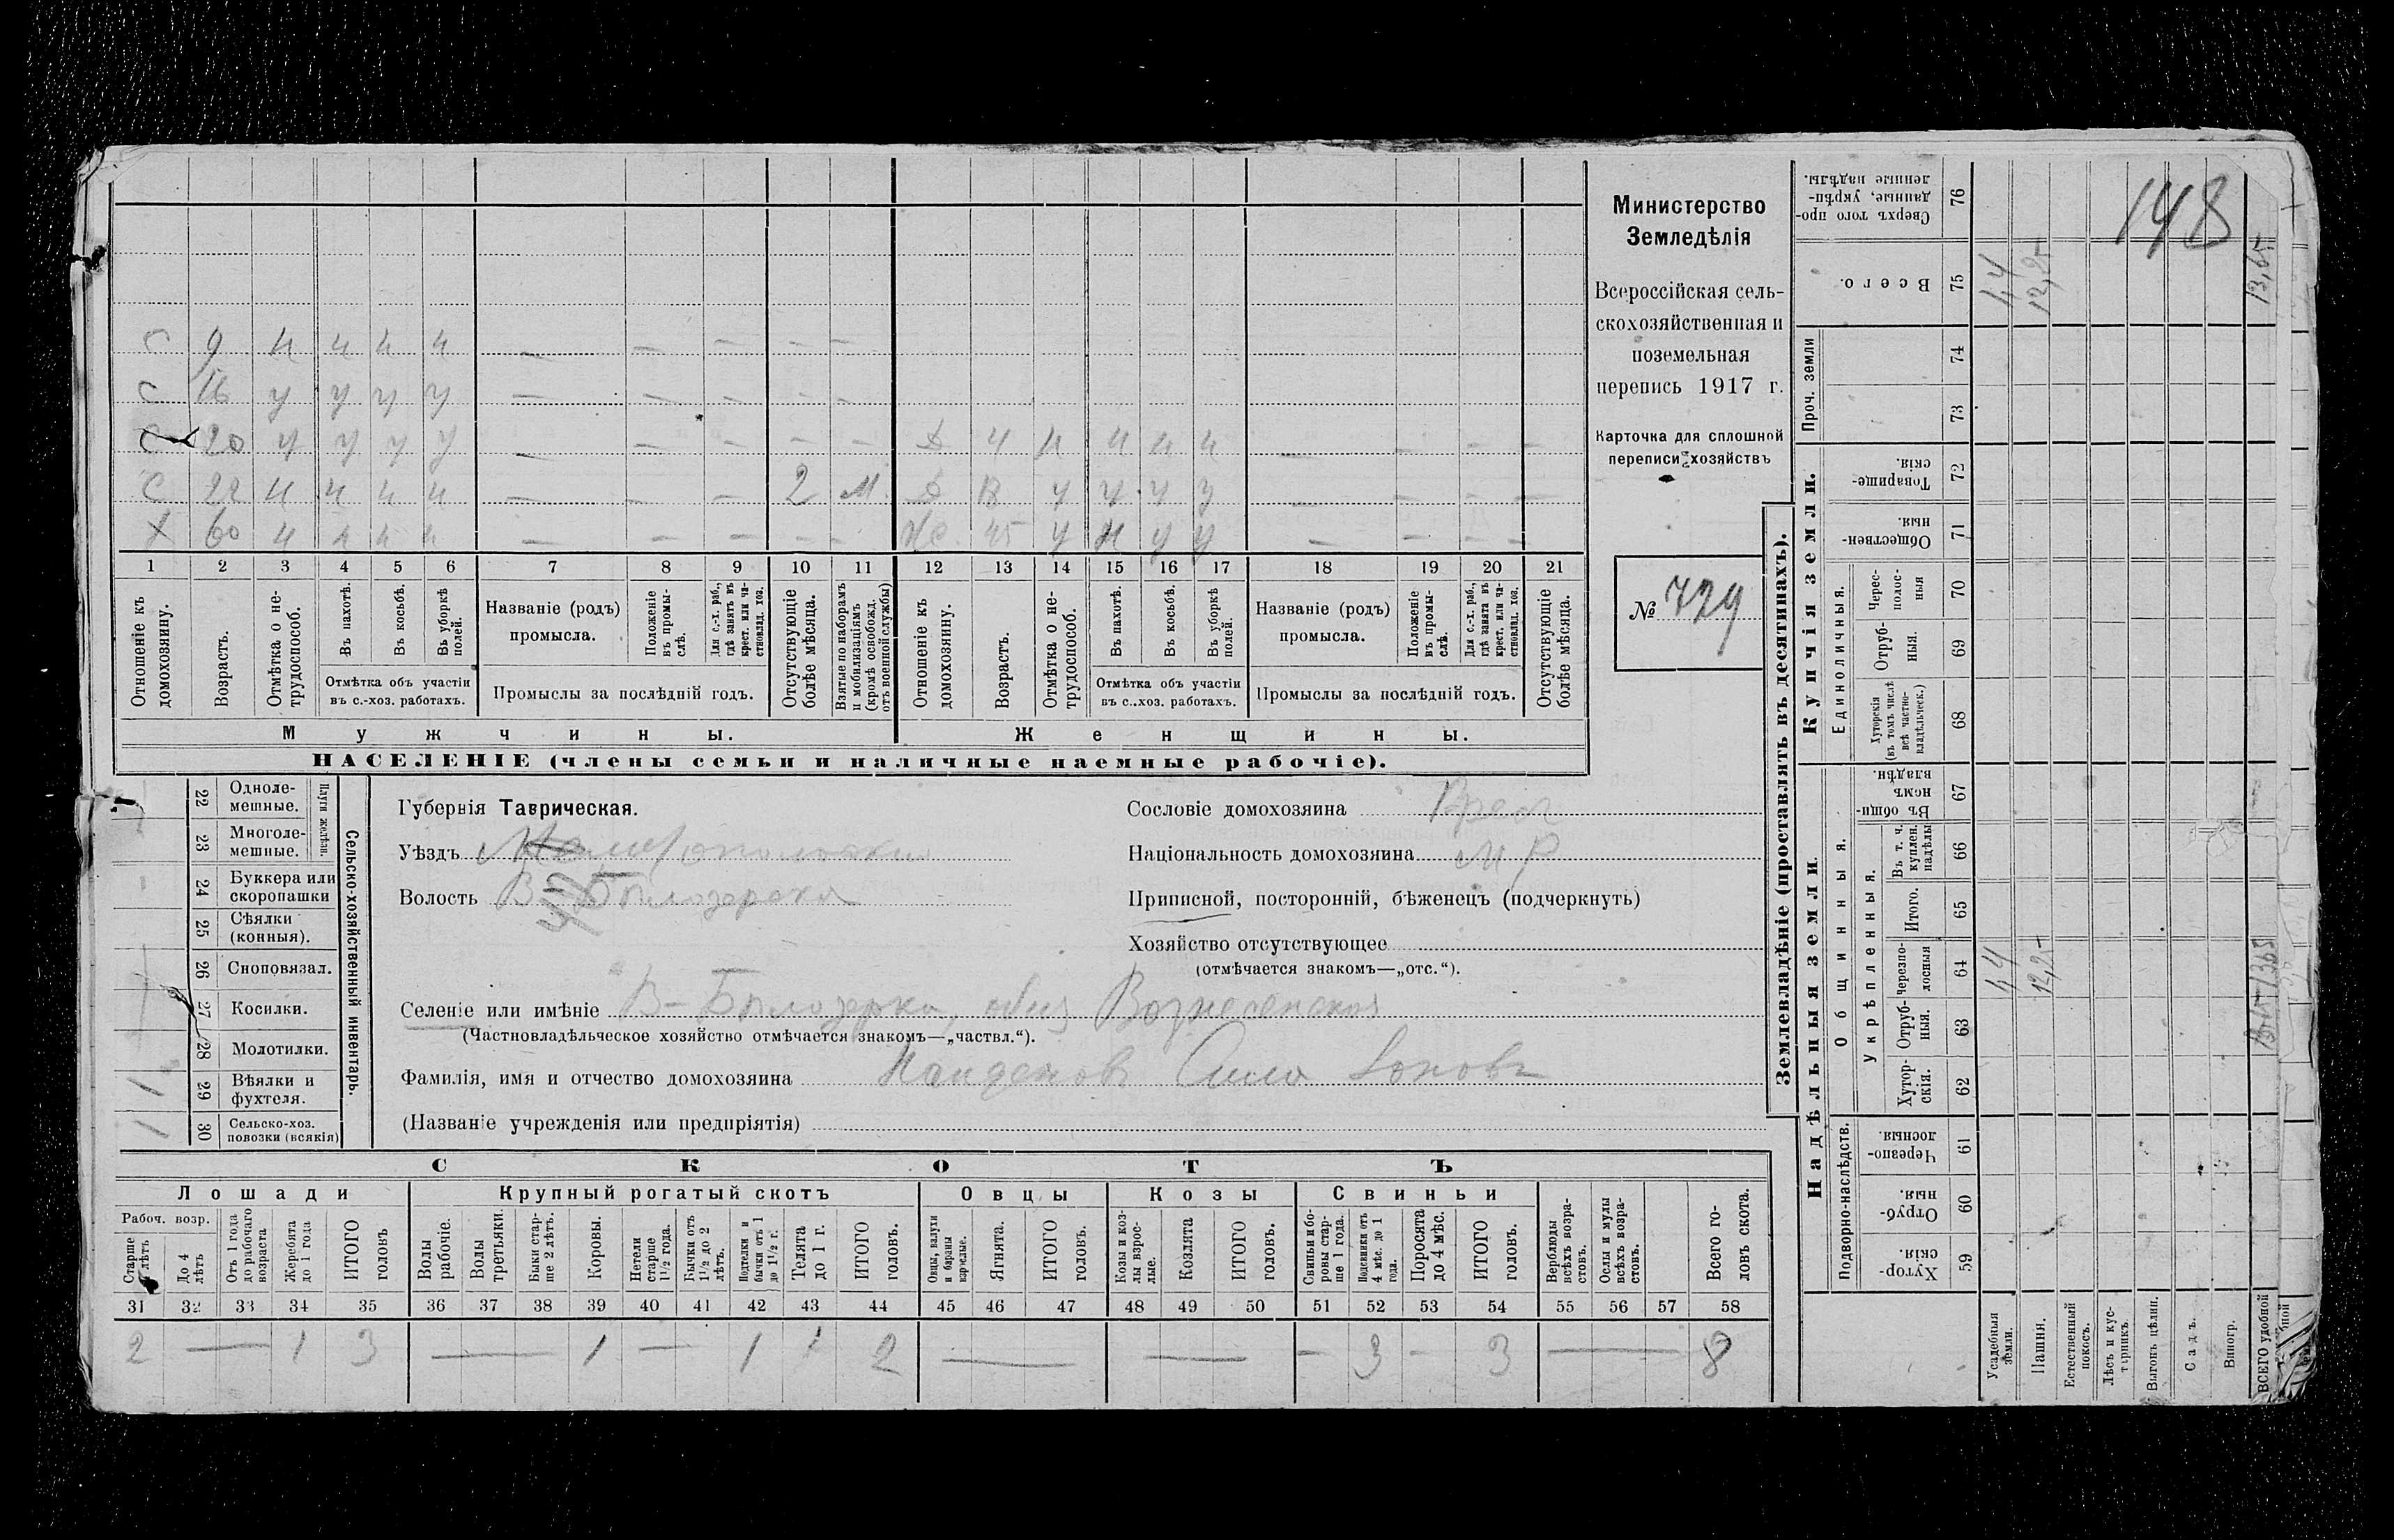 Министерство
Земледѣлія
Всероссійская сель-
скохозяйственная и
поземельная
перепись 1917 г.
Карточка для сплошной
переписи хозяйствъ
№ 729
148
С 9 н н н н — — — — —
С 16 у у у у — — — — —
С 20 у у у у — — — — — Д 4 н н н н — — — —
С 22 н н н н — — — 2 М. Д 13 у у у у — — — —
Х 60 н н н н — — — — — Ж 45 у н у у — — — —
1 2 3 4 5 6 7 8 9 10 11 12 13 14 15 16 17 18 19 20 21
Отношеніе къ домохозяину.
Возрастъ.
Отмѣтка о не-трудоспособ.
Въ пахотѣ.
Въ косьбѣ.
Въ уборкѣ полей.
Отмѣтка объ участіи въ с.-хоз. работахъ.
Названіе (родъ) промысла.
Положеніе въ промы-слѣ.
Для с.-х. раб., гдѣ занятъ въ крест. или ча-стновлад. хоз.
Промыслы за послѣдній годъ.
Отсутствующіе болѣе мѣсяца.
Взятые по наборамъ и мобилизаціямъ (кромѣ освобожд. отъ военной службы)
Отношеніе къ домохозяину.
Возрастъ.
Отмѣтка о не-трудоспособ.
Въ пахотѣ.
Въ косьбѣ.
Въ уборкѣ полей.
Отмѣтка объ участіи въ с..хоз. работахъ.
Названіе (родъ) промысла.
Положеніе въ промы-слѣ.
Для с.-х. раб., гдѣ занята въ крест. или ча-стновлад. хоз.
Промыслы за послѣдній годъ.
Отсутствующіе болѣе мѣсяца.
Мужчины. Женщины.
НАСЕЛЕНІЕ (члены семьи и наличные наемные рабочіе).
22 Однолемешные.
23 Многолемешные.
Плуги желѣзн.
24 Буккера или скоропашки
25 Сѣялки (конныя).
26 Сноповязал.
27 Косилки.
28 Молотилки.
1 29 Вѣялки и фухтеля.
1 30 Сельско-хоз. повозки (всякія)
Сельско-хозяйственный инвентарь.
Губернія Таврическая.
Уѣздъ Мелитопольскій
Волость В-Бѣлозерская
Селеніе или имѣніе В-Бѣлозерка, общ Вознесенская
(Частновладѣльческое хозяйство отмѣчается знакомъ—„частвл.“).
Фамилія, имя и отчество домохозяина
(Названіе учрежденія или предпріятія)
Сословіе домохозяина Крест
Національность домохозяина МР
Приписной, посторонній, бѣженецъ (подчеркнуть)
Хозяйство отсутствующее
(отмѣчается знакомъ—„отс.“).
СКОТЪ
Лошади Крупный рогатый скотъ Овцы Козы Свиньи
Рабоч. возр.
Старше лѣтъ
До 4 лѣтъ
Отъ 1 года до рабочаго возраста
Жеребята до 1 года
ИТОГО головъ
Волы рабочіе.
Волы третьяки.
Быки стар-ше 2 лѣтъ.
Коровы.
Нетели старше 1½ года.
Бычки отъ 1½ до 2 лѣтъ.
Подтелки и бычки отъ 1 до 1½ г.
Телята до 1 г.
ИТОГО головъ.
Овцы, валухи и бараны взрослые.
Ягнята.
ИТОГО головъ.
Козы и коз-лы взрос-лые.
Козлята
ИТОГО головъ.
Свиньи и бо-ровы стар-ше 1 года.
Подсвинки отъ 4 мѣс. до 1 года.
Поросята до 4 мѣс.
ИТОГО головъ.
Верблюды всѣхъ возра-стовъ.
Ослы и мулы всѣхъ возра-стовъ.
Всего го-ловъ скота.
31 32 33 34 35 36 37 38 39 40 41 42 43 44 45 46 47 48 49 50 51 52 53 54 55 56 57 58
2 — 1 3 — 1 — 1 1 2 — — — 3 — 3 — 8
Землевладѣніе (проставлять въ десятинахъ).
Купчія земли.
Надѣльныя земли.
Сверхъ того про-данные, укрѣп-ленные надѣлы. 76
Всего. 75
Проч. земли 74 73
Товарище-скія. 72
Обществен-ныя. 71
Единоличныя.
Черес-полос-ныя 70
Отруб-ныя. 69
Хуторскія (въ томъ числѣ всѣ частно-владѣльческ.) 68
Общинныя.
Въ общи-номъ владѣн. 67
Укрѣпленныя.
Въ т. ч. куплен. надѣлы 66
Итого. 65
Черезпо-лосныя 64
Отруб-ныя. 63
Хутор-скія. 62
Подворно-наслѣдств.
Черезпо-лосныя. 61
Отруб-ныя. 60
Хутор-скія. 59
Усадебныя земли.
Пашня. 12,25 12,25
Естественный покосъ.
Лѣсъ и кус-тарникъ.
Выгонъ цѣлин.
Садъ.
Виногр.
ВСЕГО удобной 13,65